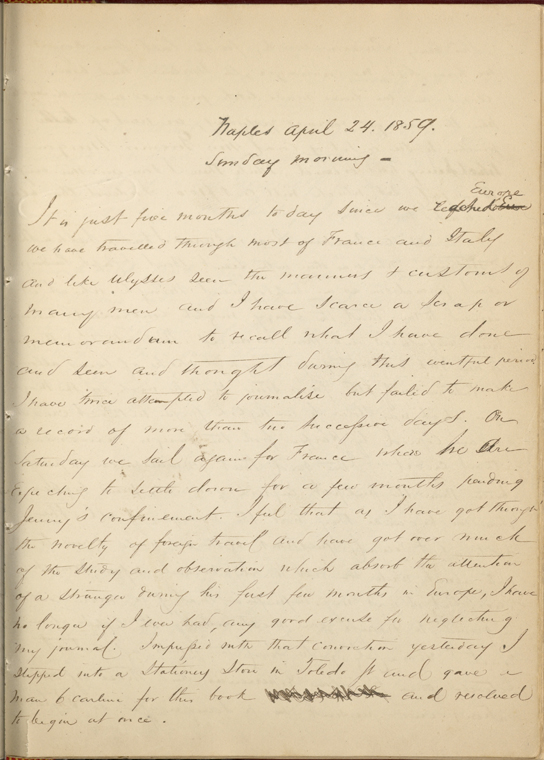 Naples April 24. 1859.
Sunday morning -
Europe
It is just five months to day since we reached
we have travelled through most of France and Italy
and like Ulysses seen the manners & customs of
many men and I have scarce a scrap or
memorandum to recall what I have done
and seen and thought during this eventful period
I have twice attempted to journalise but failed to make
a record of more than two successive days. On
Saturday we sail again for France where we are
expecting to settle down for a few months pending
Jenny's confinement. I feel that as I have got through
the novelty of foreign travel and have got over much
of the study and observation which absorb the attention
of a stranger during his first few months in Europe, I have
no longer if I ever had, any good excuse for neglecting
my journal. Impressed with that conviction yesterday I
stepped into a Stationers Store in Toledo St and gave a
man 6 carline for this book and resolved
to begin at once.